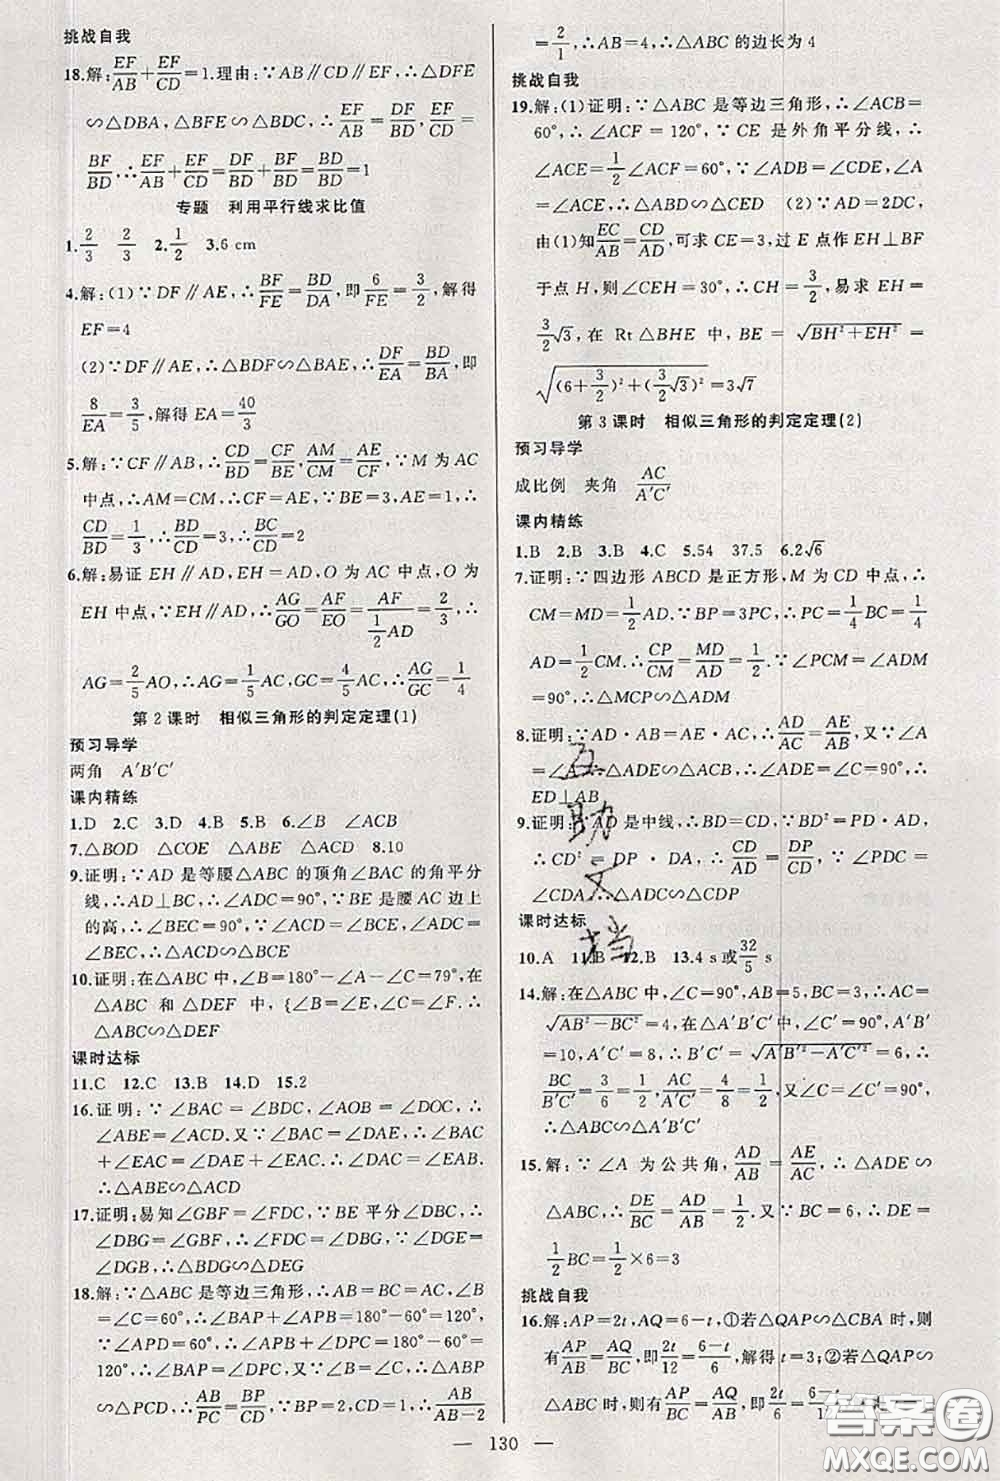 挑战自我
18.解:EF/AB+EF/CD=1.理由:∵AB∥CD∥EF,∴△DFE
∽△DBA,△BFE∽△BDC,∴EF/AB=DF/BD,EF/CD=
BF/BD.∴EF/AB+EF/CD=DF/BD+BF/BD=BD/BD=1
专题 利用平行线求比值
1.2/3 2/3 2.1/2 3.6 cm
4.解:(1)∵DF∥AE,∴BF/FE=BD/DA,即6/FE=3/2,解得
EF=4
(2)∵DF∥AE,∴△BDF∽△BAE,∴DF/EA=BD/BA,即
8/EA=3/5,解得EA=40/3
5.解:∵CF∥AB,∴CD/BD=CF/BE,AM/CM=AE/CF,∵M为AC
中点,∴AM=CM,∴CF=AE,∵BE=3,AE=1,∴
CD/BD=1/3,∴BD/CD=3,∴BC/CD=2
6.解:易证EH∥AD,EH=AD,O为AC中点,O为
EH中点,∵EH∥AD,∴AG/GO=AF/EO=AF/(1/2 AD)=2/3,∴
AG=2/5 AO,∴AG=1/5 AC,GC=4/5 AC,∴AG/GC=1/4
第2课时 相似三角形的判定定理(1)
预习导学
两角 A′B′C′
课内精练
1.D 2.C 3.D 4.B 5.B 6.∠B ∠ACB
7.△BOD △COE △ABE △ACD 8.10
9.证明:∵AD是等腰△ABC的顶角∠BAC的角平分
线,∴AD⊥BC,∴∠ADC=90°,∵BE是腰AC边上
的高,∴∠BEC=90°,∵∠ACD=∠BCE,∠ADC=
∠BEC,∴△ACD∽△BCE
10.证明:在△ABC中,∠B=180°-∠A-∠C=79°,在
△ABC和△DEF中,{∠B=∠E,∠C=∠F.∴
△ABC∽△DEF
课时达标
11.C 12.C 13.B 14.D 15.2
16.证明:∵∠BAC=∠BDC,∠AOB=∠DOC,∴
∠ABE=∠ACD.又∵∠BAC=∠DAE,∴∠BAC
+∠EAC=∠DAE+∠EAC.∴∠DAC=∠EAB.
∴△ABE∽△ACD
17.证明:易知∠GBF=∠FDC,∵BE平分∠DBC,∴
∠DBG=∠GBF,∴∠DBG=∠FDC,∵∠DGE=
∠DGB,∴△BDG∽△DEG
18.解:∵△ABC是等边三角形,∴AB=BC=AC,∠B
=∠C=60°,∴∠BAP+∠APB=180°-60°=120°,
∵∠APD=60°,∴∠APB+∠DPC=180°-60°=
120°,∴∠BAP=∠DPC,又∵∠B=∠C,∴△ABP
∽△PCD,∴AB/PC=BP/CD,∵BP=2,CD=1,∴AB/AB-2
=2/1,∴AB=4,∴△ABC的边长为4
挑战自我
19.解:(1)证明:∵△ABC是等边三角形,∴∠ACB=
60°,∴∠ACF=120°,∵CE是外角平分线,∴
∠ACE=1/2∠ACF=60°,∵∠ADB=∠CDE,∠A
=∠ACE,∴△ABD∽△CED (2)∵AD=2DC,
由(1)知EC/AB=CD/AD,可求CE=3,过E点作EH⊥BF
于点H,则∠CEH=30°,∴CH=3/2,易求EH=
3/2√3,在Rt△BHE中,BE=√(BH²+EH²)=
√((6+3/2)²+(3/2√3)²)=3√7
第3课时 相似三角形的判定定理(2)
预习导学
成比例 夹角 AC/A′C′
课内精练
1.B 2.B 3.B 4.C 5.54 37.5 6.2√6
7.证明:∵四边形ABCD是正方形,M为CD中点,∴
CM=MD=1/2 AD.∵BP=3PC,∴PC=1/4 BC=1/4
AD=1/2 CM.∴CP/CM=MD/AD=1/2,∵∠PCM=∠ADM
=90°,∴△MCP∽△ADM
8.证明:∵AD·AB=AE·AC,∴AD/AC=AE/AB,又∵∠A
=∠A,∴△ADE∽△ACB,∴∠ADE=∠C=90°,∴
ED⊥AB
9.证明:∵AD是中线,∴BD=CD,∵BD²=PD·AD,
∴CD²=DP·DA,∴CD/AD=DP/CD,∵∠PDC=
∠CDA,∴△ADC∽△CDP
课时达标
10.A 11.B 12.B 13.4 s或32/5 s
14.解:在△ABC中,∠C=90°,AB=5,BC=3,∴AC=
√(AB²-BC²)=4,在△A′B′C′中,∠C′=90°,A′B′
=10,A′C′=8,∴B′C′=√(A′B′²-A′C′²)=6,∴
BC/B′C′=3/6=1/2,AC/A′C′=4/8=1/2,又∠C=∠C′=90°,
∴△ABC∽△A′B′C′
15.解:∵∠A为公共角,AD/AB=AE/AC,∴△ADE∽
△ABC,∴DE/BC=AD/AB=1/2.又∵BC=6,∴DE=
1/2 BC=1/2×6=3
挑战自我
16.解:AP=2t,AQ=6-t,①若△QAP∽△CBA时,则
有AP/AB=AQ/BC,即2t/12=6-t/6,解得t=3;②若△QAP∽
△ABC时,则有AP/BC=AQ/AB,即2t/6=6-t
— 130 —
互助文档
答案圈
MXQE.COM